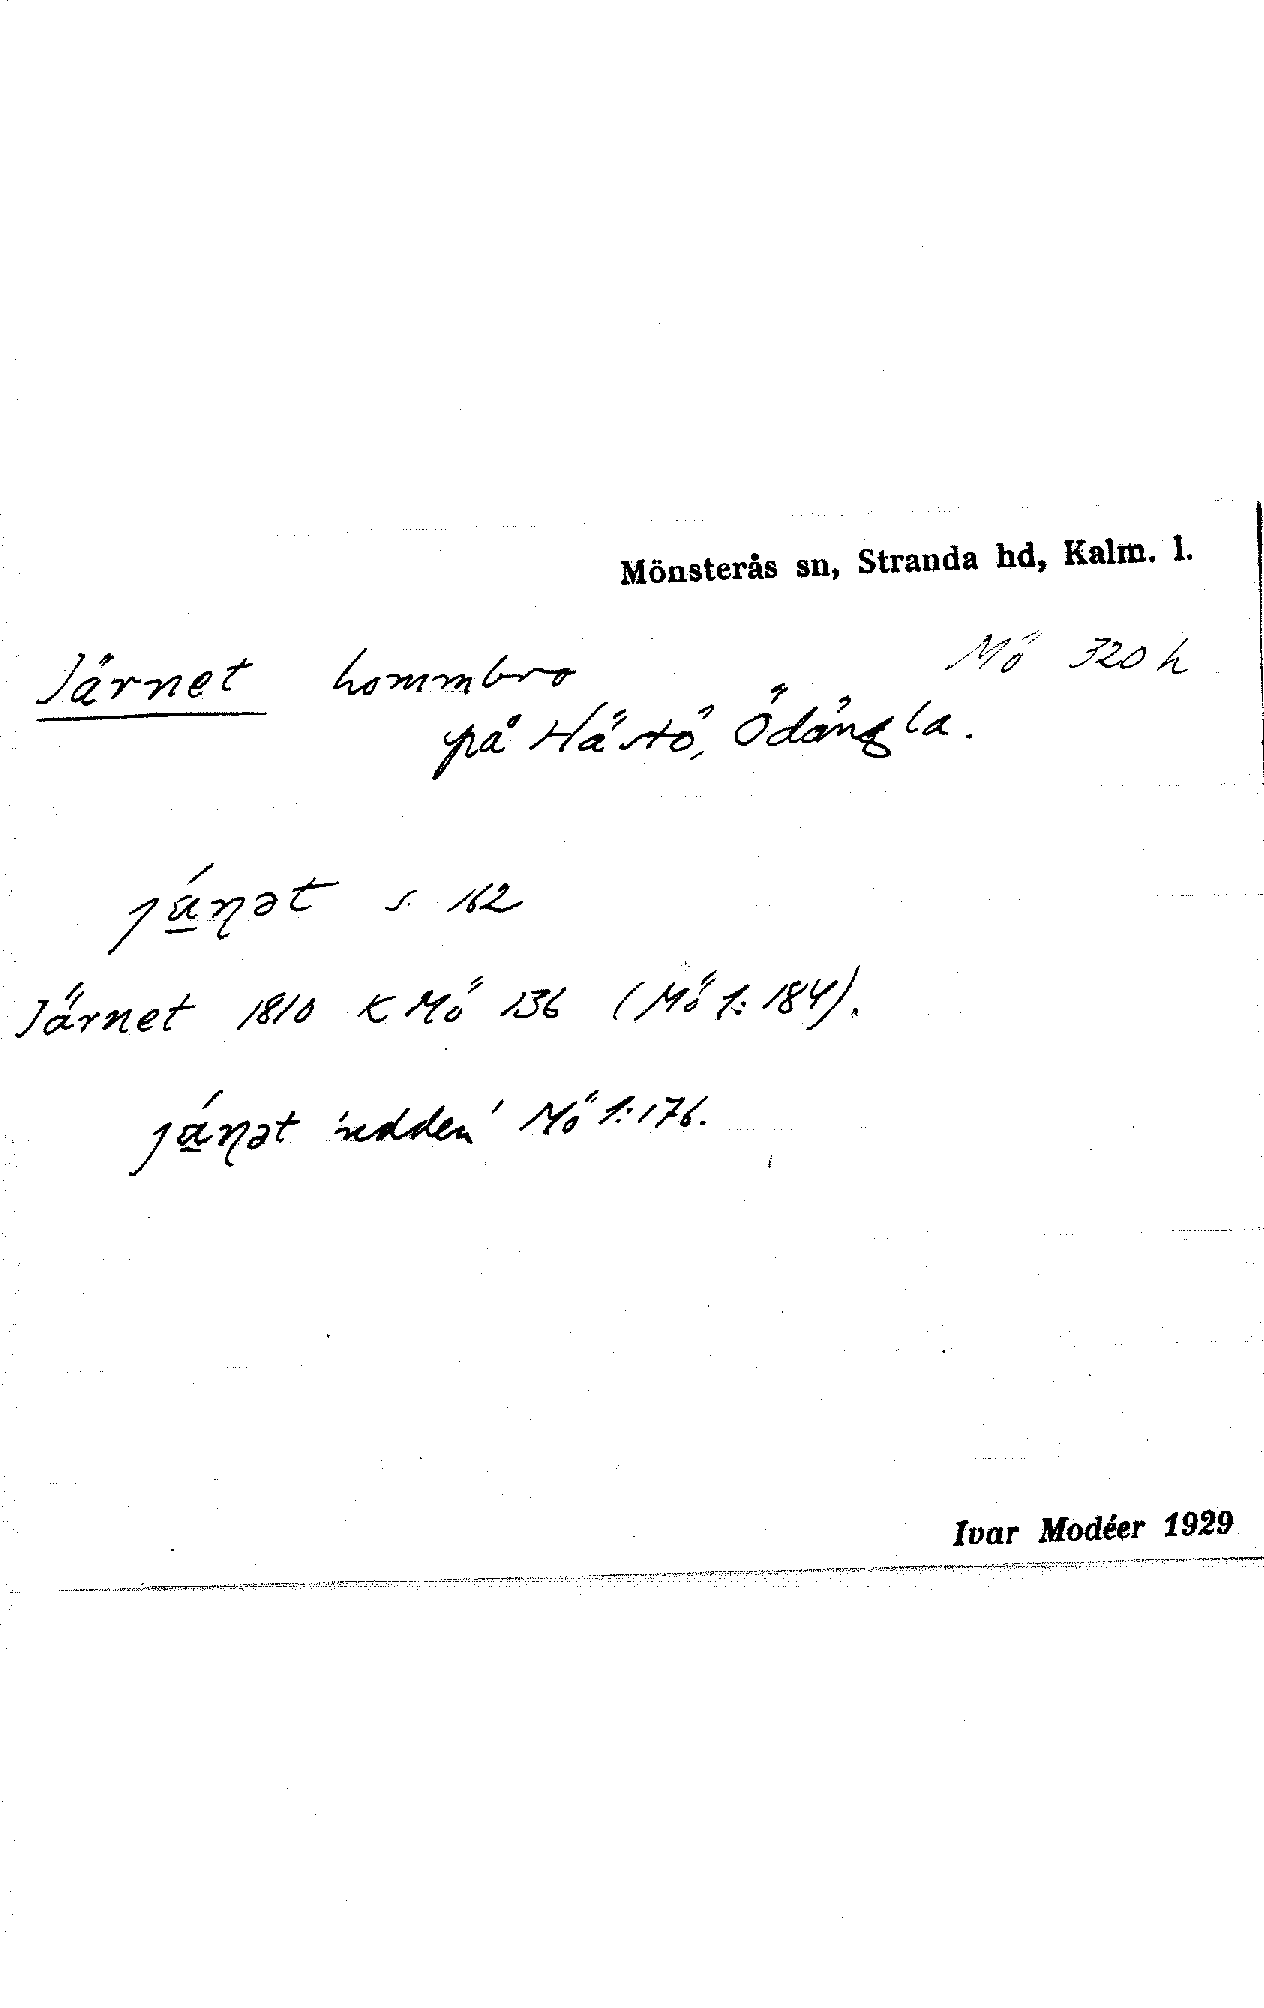 Mönsterås sn, Stranda hd, Kalm. l.
Järnet hommbro Mö 320 h
på Hästö, Ödängla.
jánət s. 162
Järnet 1810 K Mö 136 (Mö 1:184).
jánət 'udden' Mö 1:176.
Ivar Modéer 1929